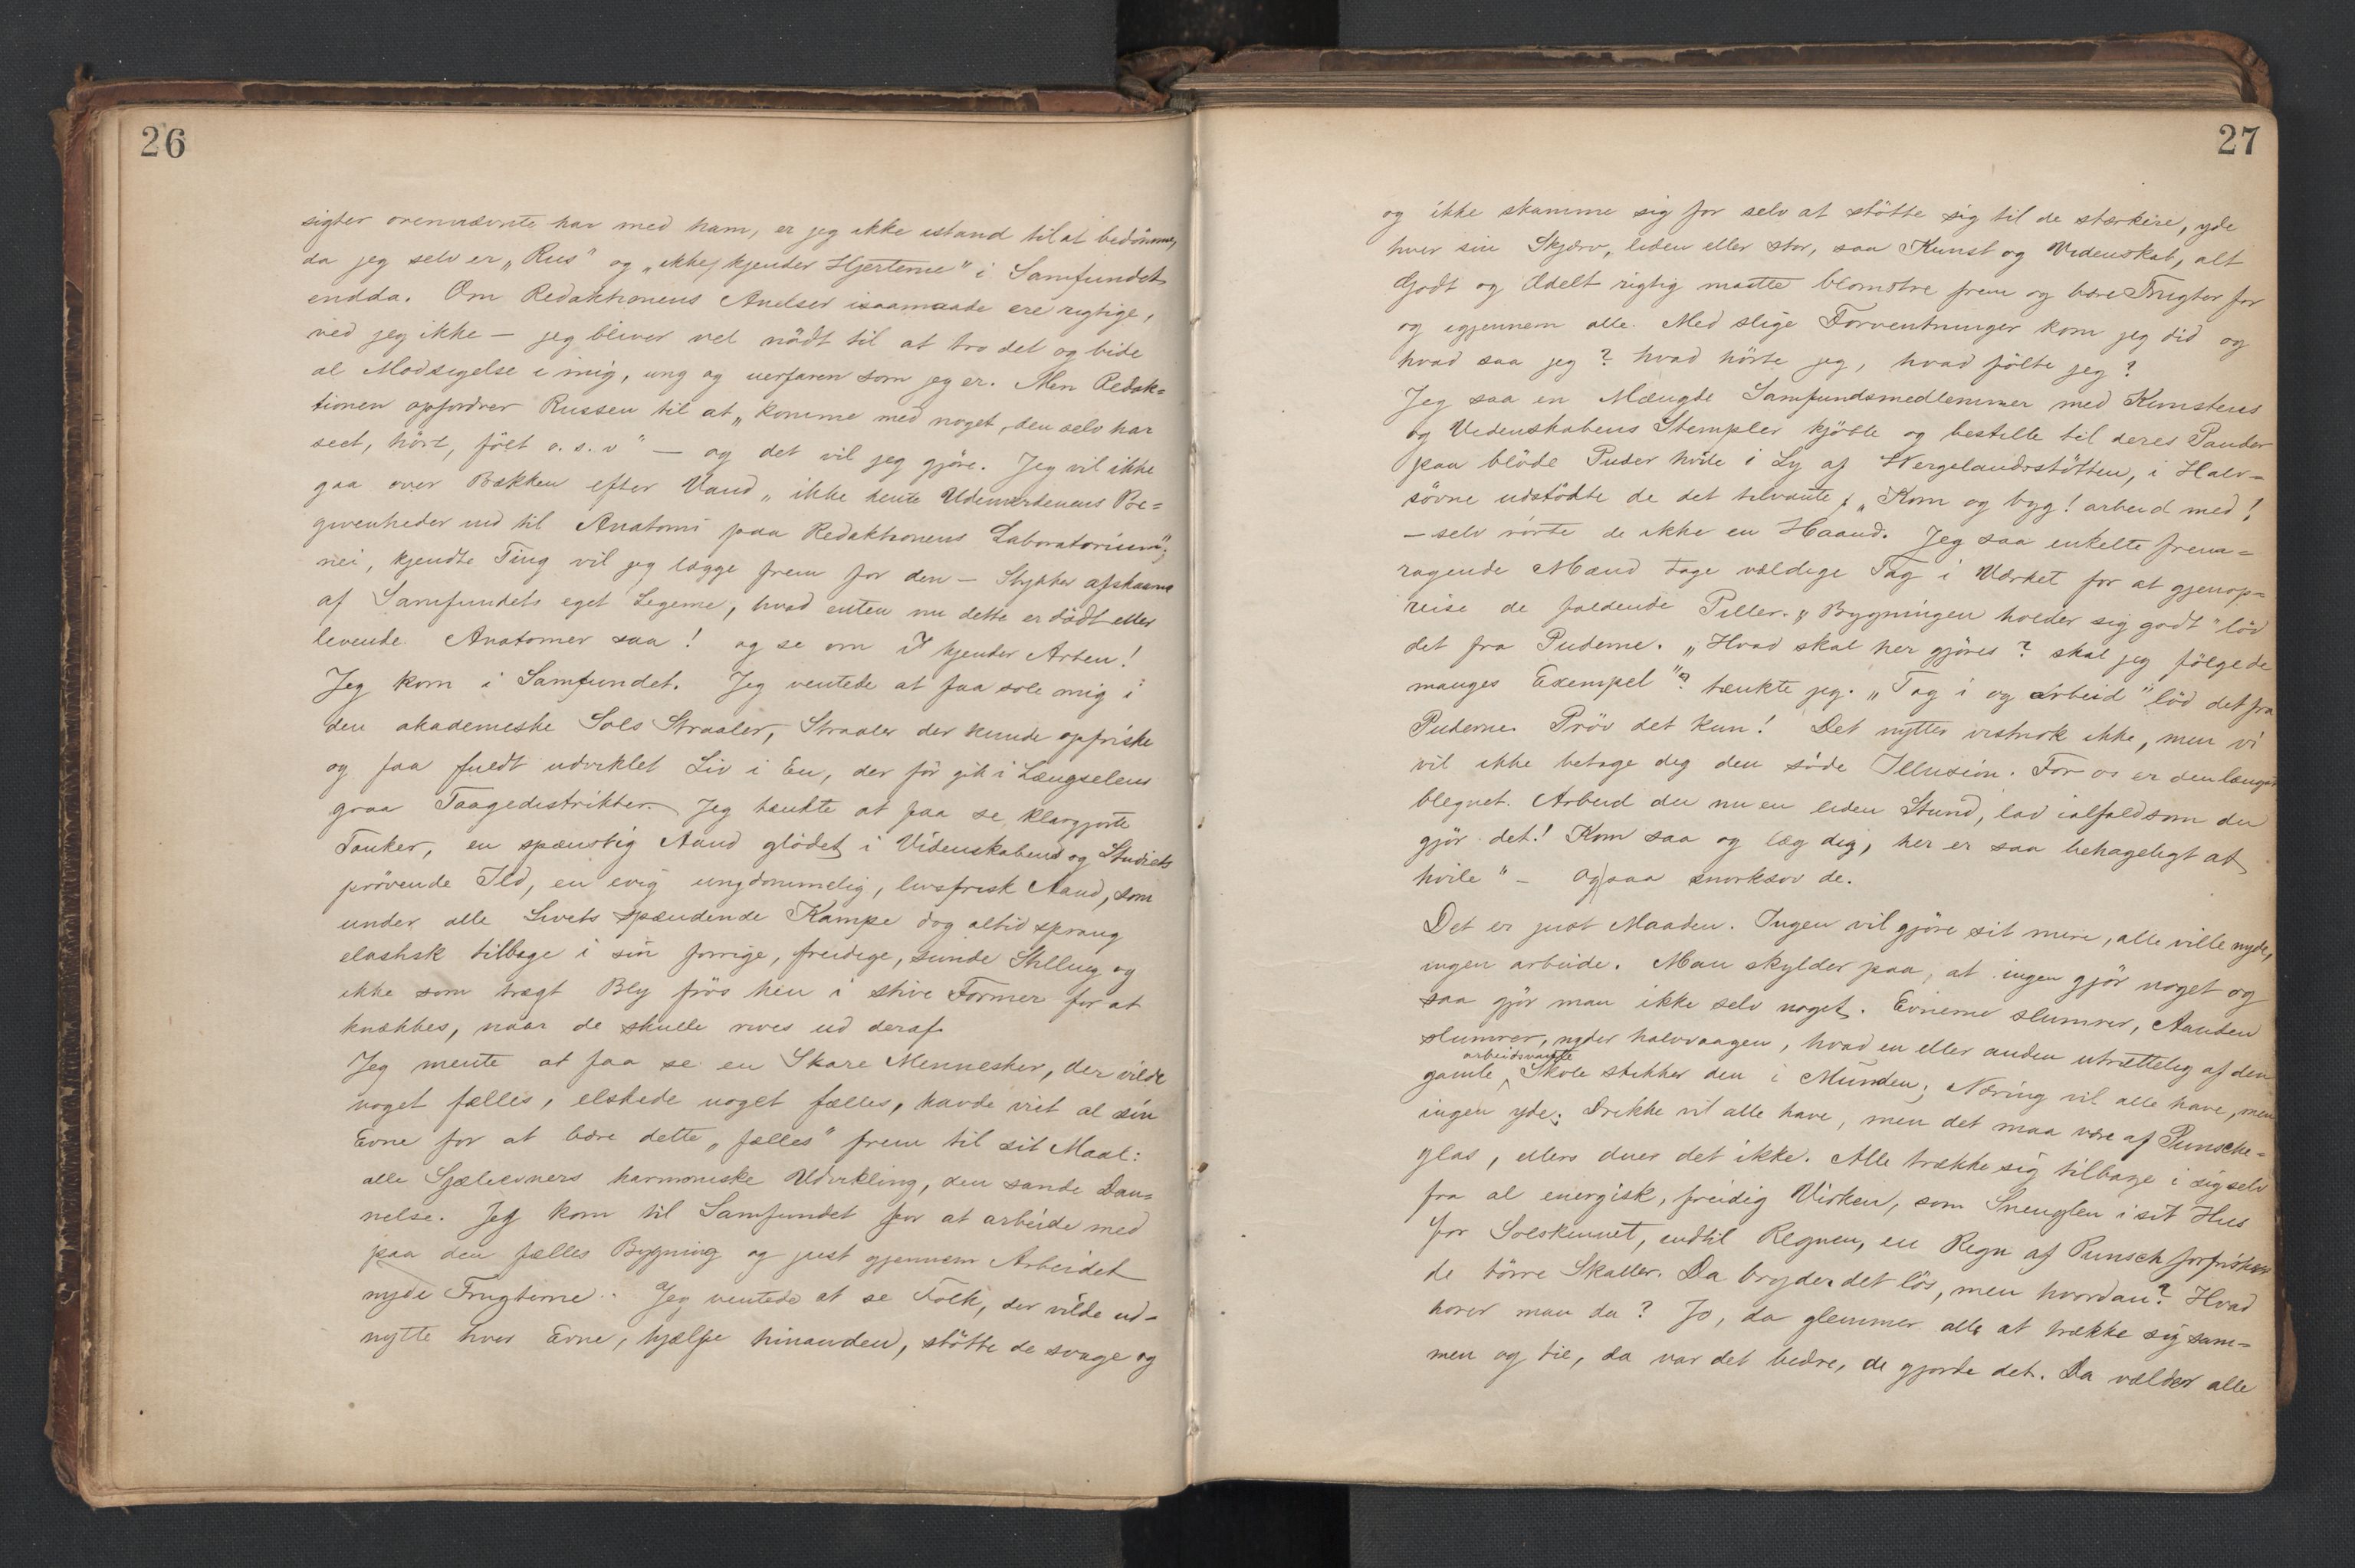 26
sigter ovennævnte har med ham, er jeg ikke istand til at bedømme,
da jeg selv er „Rus" og „ikke kjender Hjerterne" i Samfundet
endda. Om Redaktionens Anelser isaamaade ere rigtige,
ved jeg ikke — jeg bliver vel nödt til at tro det og bide
al Modsigelse i mig, ung og uerfaren som jeg er. Men Redak=
tionen opfordrer Russen til at „komme med noget, den selv har
seet, hört, fölt o. s. v" — og det vil jeg gjöre. Jeg vil ikke
gaa over Bækken efter Vand „ikke hente Udenverdenens Be=
givenheder ind til Anatomi paa Redaktionens Laboratorium";
nei, kjendte Ting vil jeg lægge frem for den — Stykker afskaarne
af Samfundets eget Legeme, hvad enten nu dette er dödt eller
levende. Anatomer saa! og se om I kjender Arten!
Jeg kom i Samfundet. Jeg ventede at faa sole mig i
den akademiske Sols Straaler, Straaler der kunde opfriske
og faa fuldt udviklet Liv i En, der för gik i Længselens
graa Taagedistrikter. Jeg tænkte at faa se klargjorte
Tanker, en spænstig Aand glödet i Videnskabens og Studiets
prövende Ild, en evig ungdommelig, livsfrisk Aand, som
under alle Livets spændende Kampe dog altid sprang
elastisk tilbage i sin forrige, freidige, sunde Stilling og
ikke som trægt Bly frös hen i stive Former for at
knækkes, naar de skulle rives ud deraf.
Jeg mente at faa se en Skare Mennesker, der vilde
noget fælles, elskede noget fælles, havde viet al sin
Evne for at bære dette „fælles" frem til sit Maal:
alle Sjælsevners harmoniske Udvikling, den sande Dan=
nelse. Jeg kom til Samfundet for at arbeide med
paa den fælles Bygning og just gjennem Arbeidet
nyde Frugterne. Jeg ventede at se Folk, der vilde ud-
nytte hver Evne, hjælpe hinanden, stötte de svage og
27
og ikke skamme sig for selv at stötte sig til de stærkere, yde
hver sin Skjærv, liden eller stor, saa Kunst og Videnskab, alt
Godt og Ædelt rigtig maatte blomstre frem og bære Frugter for
og igjennem alle. Med slige Forventninger kom jeg did og
hvad saa jeg? hvad hörte jeg, hvad fölte jeg?
Jeg saa en Mængde Samfundsmedlemmer med Kunstens
og Videnskabens Stempler kjöbte og bestilte til deres Pander
paa blöde Puder hvile i Ly af Wergelandsstötten, i Halv=
sövne udstödte de det tilvante; „Kom og byg! arbeid med!
— selv rörte de ikke en Haand. Jeg saa enkelte frem=
ragende Mænd tage vældige Tag i Værket for at gjenop=
reise de faldende Piller. „Bygningen holder sig godt" löd
det fra Puderne. „Hvad skal her gjöres? skal jeg fölge de
manges Exempel"? tænkte jeg. „Tag i og arbeid" löd det fra
Puderne. Pröv det kun! Det nytter vistnok ikke, men vi
vil ikke betage dig den söde Illusion. For os er den længst
blegnet. Arbeid du nu en liden Stund, lad ialfald som du
gjör det! Kom saa og læg dig, her er saa behageligt at
hvile" — Og saa snorksov de.
Det er just Maaden. Ingen vil gjöre sit mere, alle ville nyde,
ingen arbeide. Man skylder paa, at ingen gjör noget og
saa gjör man ikke selv noget. Evnerne slumrer, Aanden
slumrer, nyder halvvaagen, hvad en eller anden utrættelig af den
arbeidsvante
gamle Skole stikker den i Munden; Næring vil alle have, men
ingen yde; Drikke vil alle have, men det maa være af Punsche=
glas, ellers duer det ikke. Alle trække sig tilbage i sig selv
fra al energisk, freidig Virken, som Sneglen i sit Hus
for Solskinnet, indtil Regnen, en Regn af Punsch forfrisker
de törre Skaller. Da bryder det lös, men hvordan? Hvad
hörer man da? Jo, da glemmer alle at trække sig sam=
men og tie, da var det bedre, de gjorde det. Da vælder alle